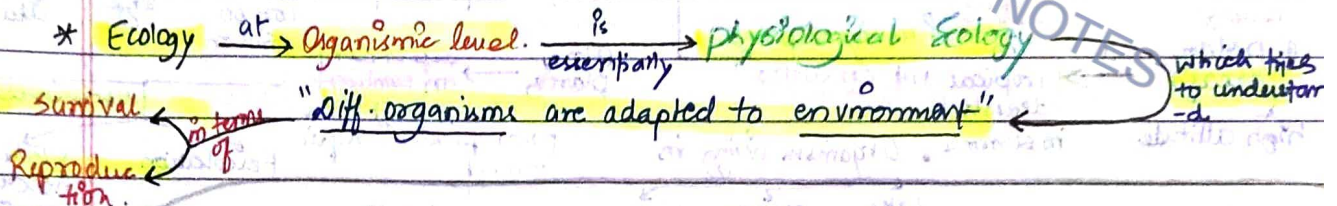 * Ecology at Organismic level. is essentially physiological Ecology
which tries to understan-d
"Diff. organisms are adapted to environment"
in terms of
Survival
Reproduction.
NOTES